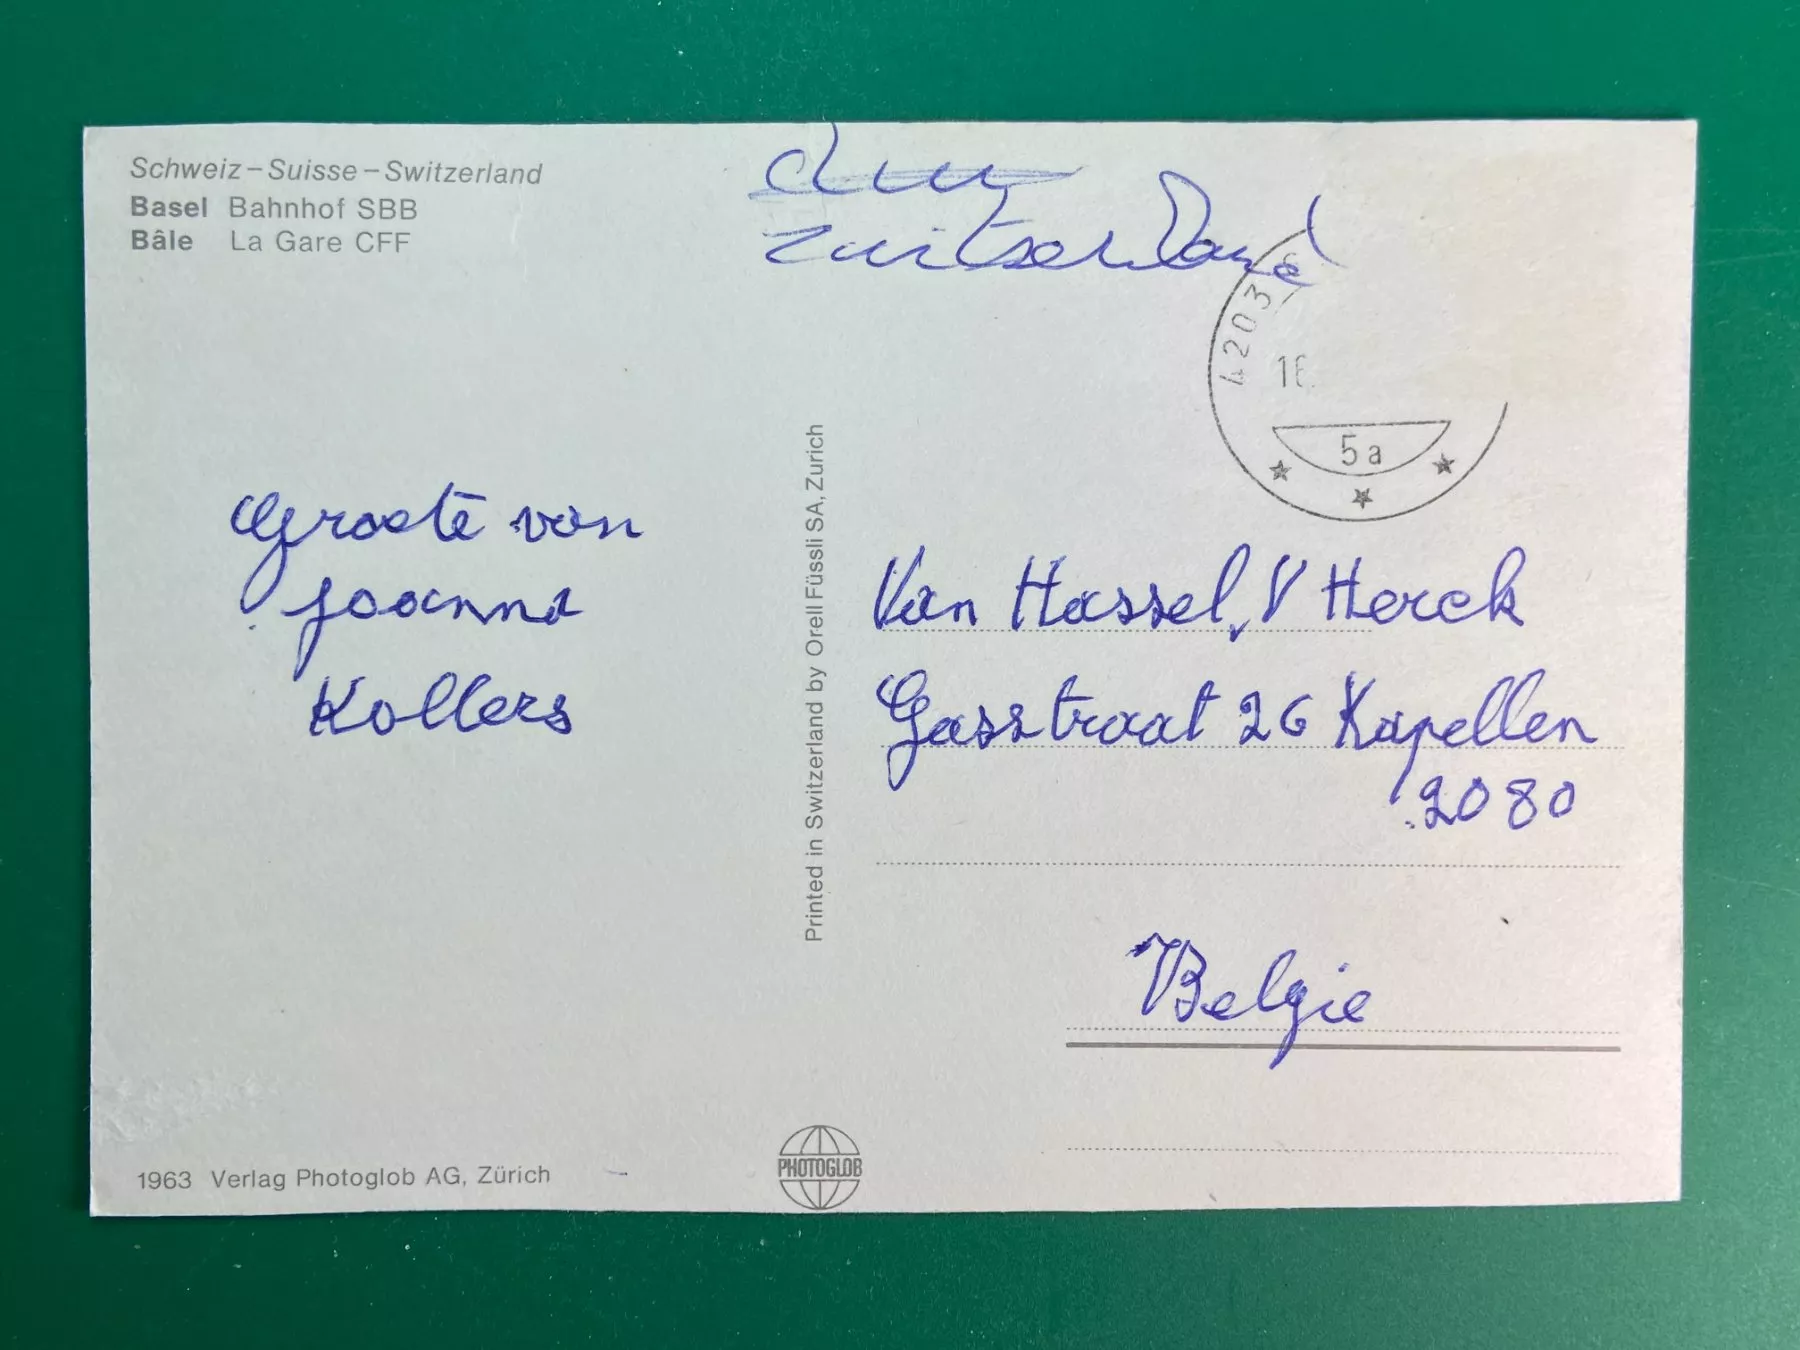 Schweiz – Suisse – Switzerland
Basel Bahnhof SBB
Bâle La Gare CFF
Zwitserland
4203
5a
Groete van
Joanna
Kollers
Printed in Switzerland by Orell Füssli SA, Zurich
Van Hassel, V Herck
Gasstraat 26 Kapellen
2080
Belgie
1963 Verlag Photoglob AG, Zürich
PHOTOGLOB